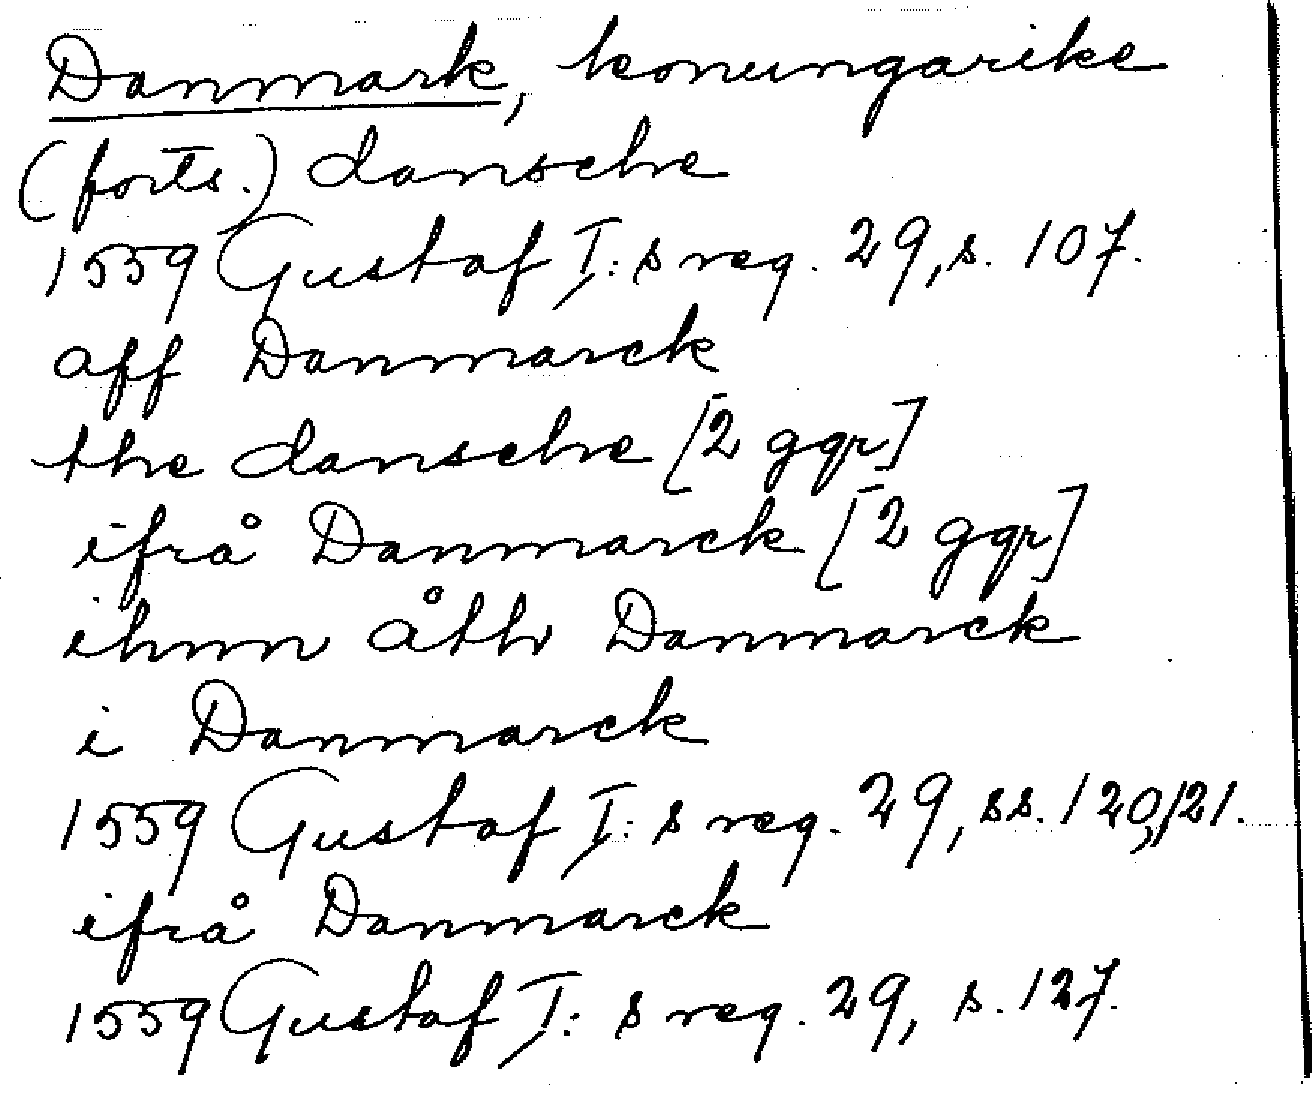 Danmark, konungarike
(forts.) dansche
1559 Gustaf I:s reg. 29, s. 107.
aff Danmarck
the dansche [2 ggr]
ifrå Danmarck [2 ggr]
ihnn åth Danmarck
i Danmarck
1559 Gustaf I:s reg. 29, ss. 120, 121.
ifrå Danmarck
1559 Gustaf I:s reg. 29, s. 127.